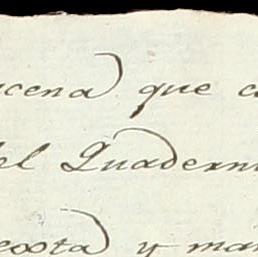 cena que c
del Quadern
exta y man